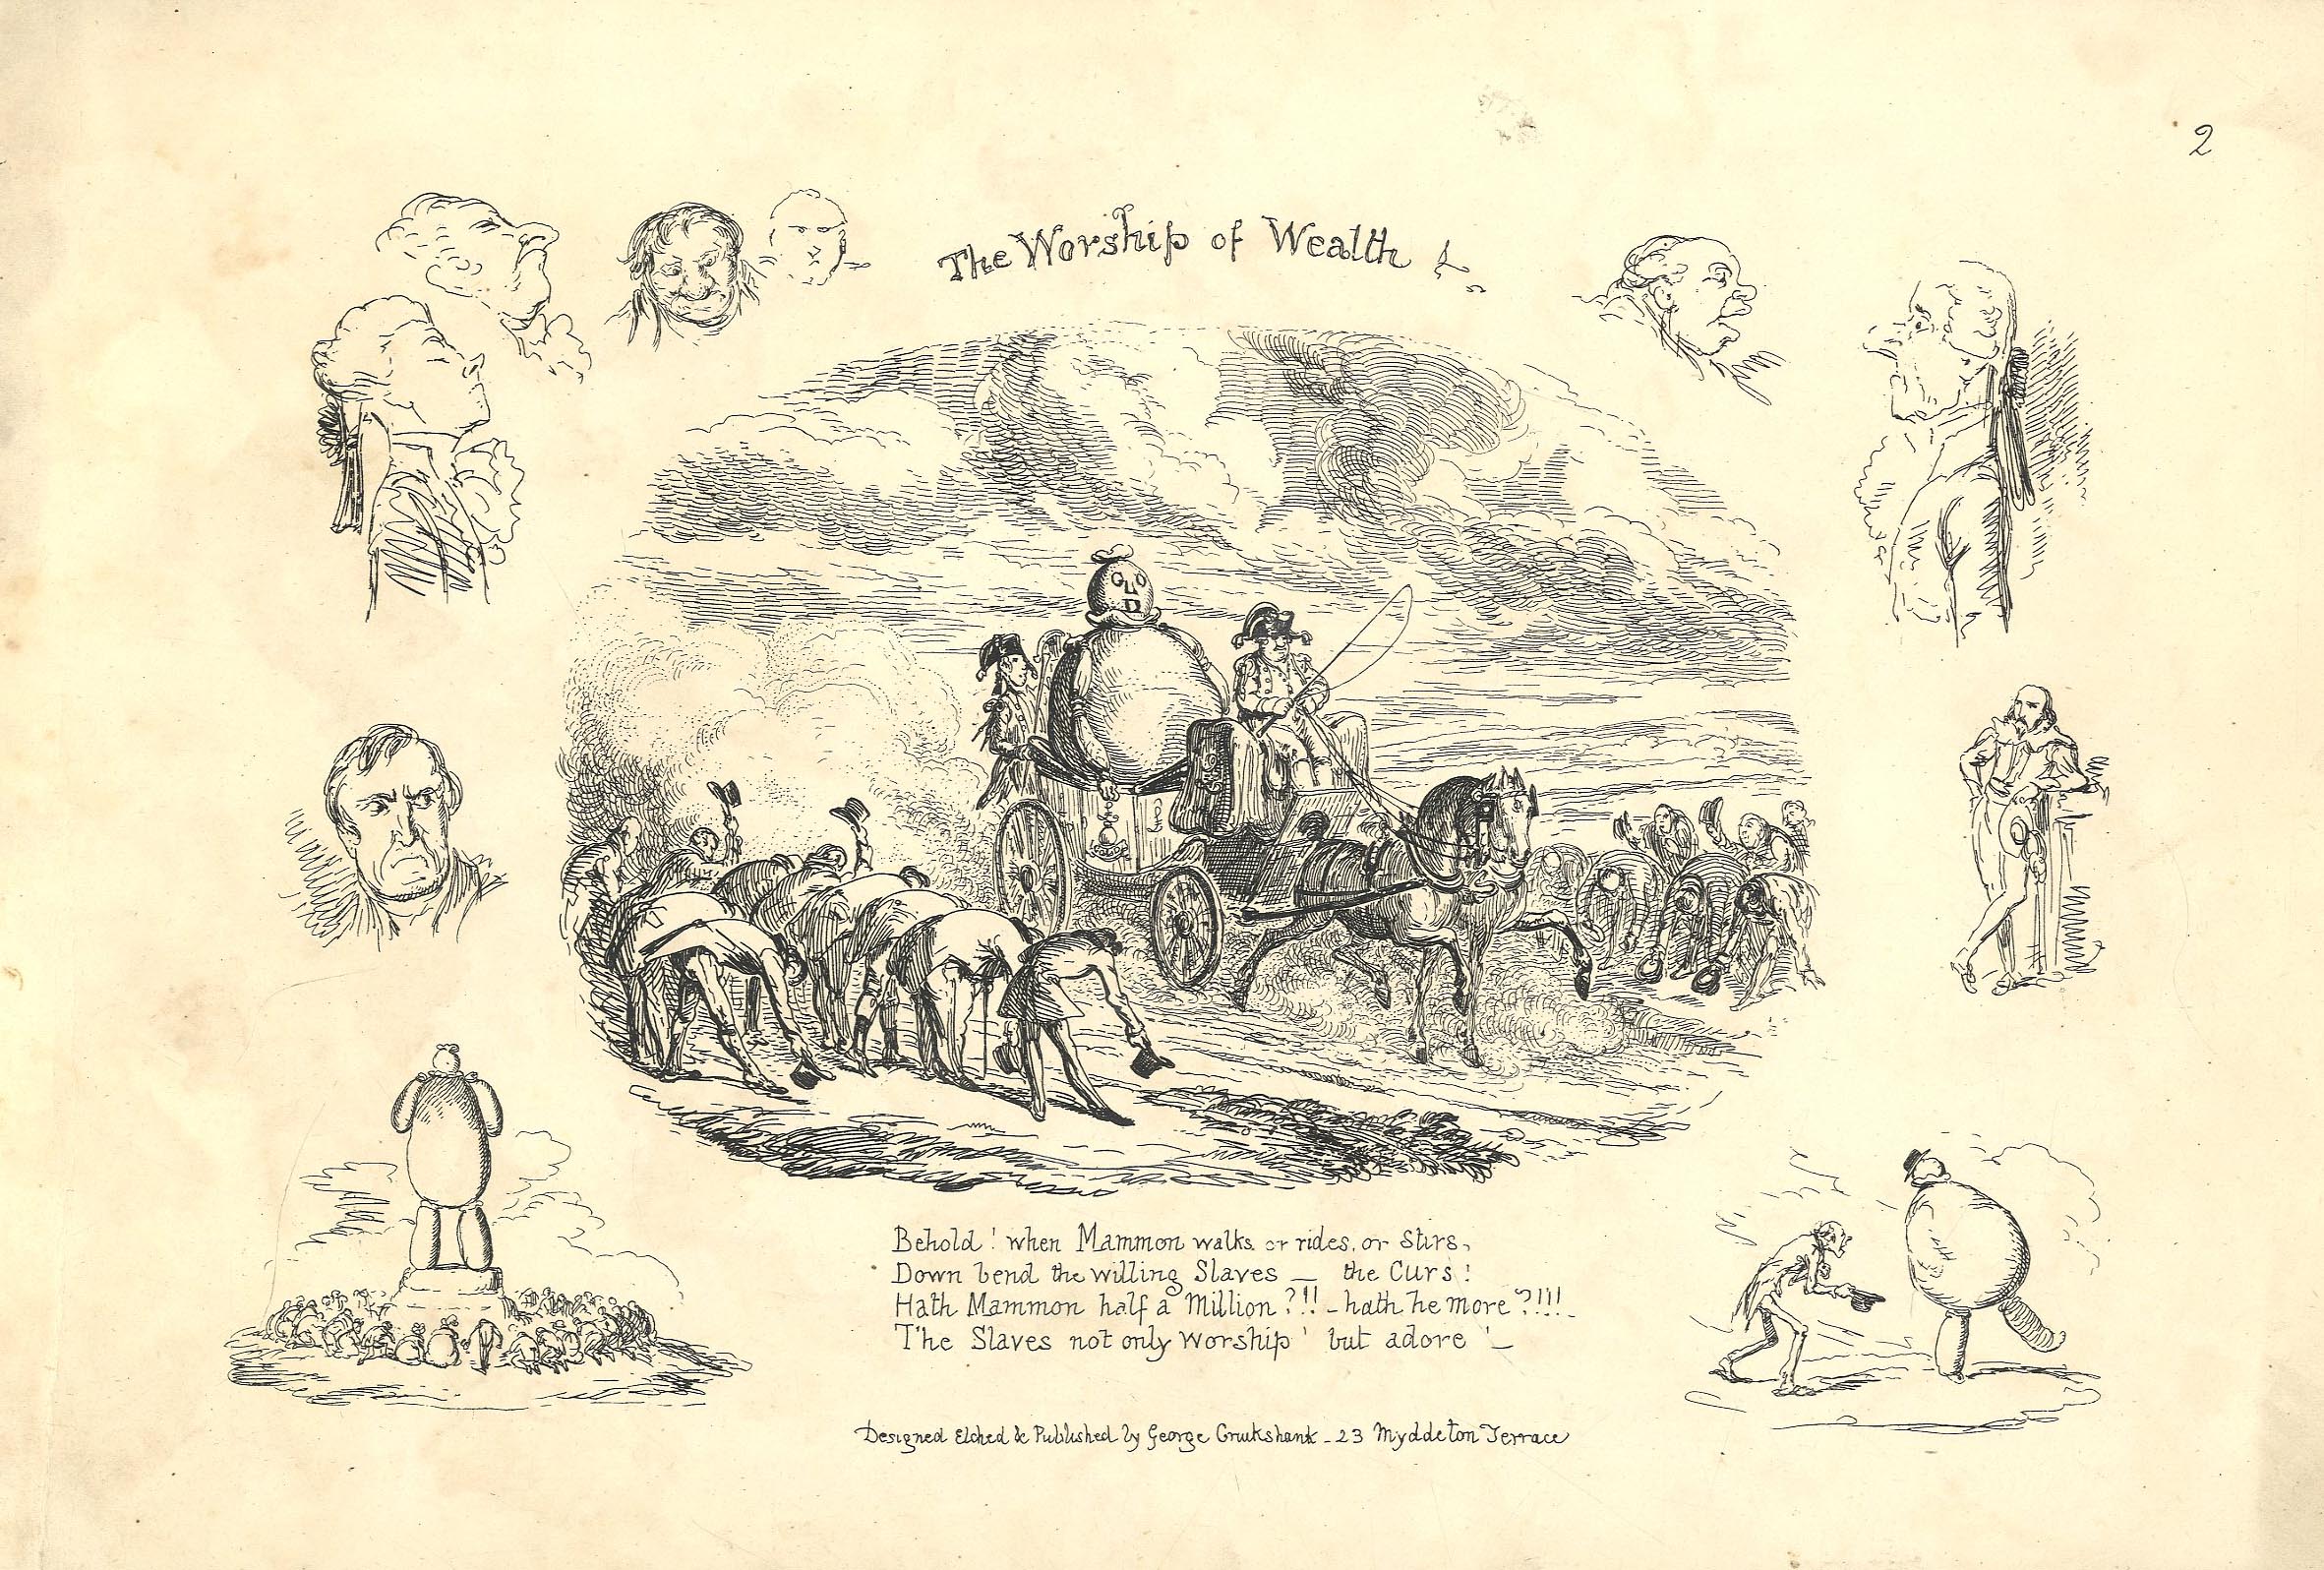 2
The Worship of Wealth
GOLD
Behold! when Mammon walks or rides, or Stirs,
Down bend the willing Slaves — the Curs!
Hath Mammon half a Million?!! - hath he more?!!!-
The Slaves not only Worship! but adore!—
Designed Etched & Published by George Cruikshank - 23 Myddelton Terrace